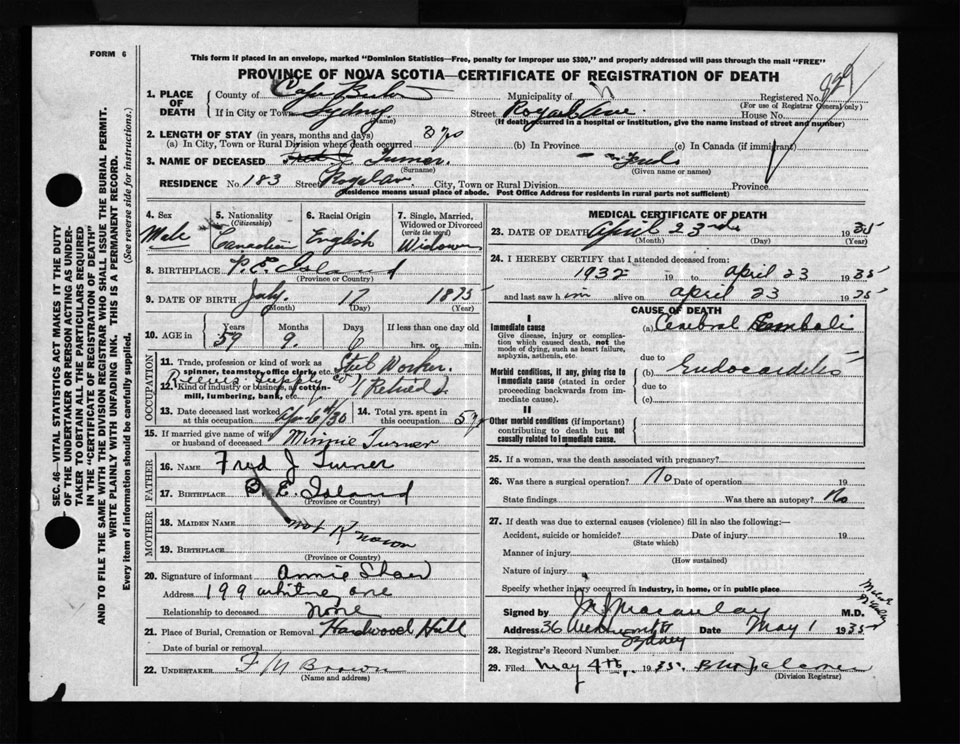 FORM 6
This form if placed in an envelope, marked "Dominion Statistics—Free, penalty for improper use $300," and properly addressed will pass through the mail "FREE"
PROVINCE OF NOVA SCOTIA—CERTIFICATE OF REGISTRATION OF DEATH
SEC. 46—VITAL STATISTICS ACT MAKES IT THE DUTY
OF THE UNDERTAKER OR PERSON ACTING AS UNDER-
TAKER TO OBTAIN ALL THE PARTICULARS REQUIRED
IN THE "CERTIFICATE OF REGISTRATION OF DEATH"
AND TO FILE THE SAME WITH THE DIVISION REGISTRAR WHO SHALL ISSUE THE BURIAL PERMIT.
WRITE PLAINLY WITH UNFADING INK. THIS IS A PERMANENT RECORD.
Every item of information should be carefully supplied. (See reverse side for instructions.)
1. PLACE OF DEATH County of Cape Breton Municipality of Registered No.
(For use of Registrar General only)
If in City or Town Sydney Street Royal Ave House No.
(Name) (If death occurred in a hospital or institution, give the name instead of street and number)
2. LENGTH OF STAY (in years, months and days)
(a) In City, Town or Rural Division where death occurred (b) In Province (c) In Canada (if immigrant)
3. NAME OF DECEASED Fred J. Turner.
(Surname) (Given name or names)
RESIDENCE No. 183 Street City, Town or Rural Division Province
(Residence means usual place of abode. Post Office Address for residents in rural parts not sufficient)
4. Sex Male
5. Nationality (Citizenship) Canadian
6. Racial Origin English
7. Single, Married, Widowed or Divorced (write the word) Widower
8. BIRTHPLACE P.E. Island
(Province or Country)
9. DATE OF BIRTH July 17 1875
(Month) (Day) (Year)
10. AGE in Years 59 Months 9 Days 6 If less than one day old hrs. or min.
OCCUPATION
11. Trade, profession or kind of work as spinner, teamster, office clerk, etc. Steel Worker.
12. Kind of industry or business, as cotton-mill, lumbering, bank, etc. Supply Co Retired
13. Date deceased last worked at this occupation 14. Total yrs. spent in this occupation
15. If married give name of wife or husband of deceased Minnie Turner
FATHER
16. NAME Fred J Turner
17. BIRTHPLACE P. E. Island
(Province or Country)
MOTHER
18. MAIDEN NAME not Known
19. BIRTHPLACE
(Province or Country)
20. Signature of informant Annie Shaw
Address 199 Whitney ave
Relationship to deceased None
21. Place of Burial, Cremation or Removal Hardwood Hill
Date of burial or removal
22. UNDERTAKER Brown
(Name and address)
MEDICAL CERTIFICATE OF DEATH
23. DATE OF DEATH April 23rd 1935
(Month) (Day) (Year)
24. I HEREBY CERTIFY that I attended deceased from:
1932 19 to April 23 1935
and last saw him alive on April 23 1935
CAUSE OF DEATH
I
Immediate cause
Give disease, injury or complication which caused death, not the mode of dying, such as heart failure, asphyxia, asthenia, etc.
(a) Cerebral Emboli
due to
Morbid conditions, if any, giving rise to immediate cause (stated in order proceeding backwards from immediate).
(b) Endocarditis
due to
(c)
II
Other morbid conditions (if important) contributing to death but not causally related to immediate cause.
25. If a woman, was the death associated with pregnancy?
26. Was there a surgical operation? No Date of operation 19
State findings Was there an autopsy? No
27. If death was due to external causes (violence) fill in also the following:—
Accident, suicide or homicide? Date of injury 19
(State which)
Manner of injury
(How sustained)
Nature of injury
Specify whether injury occurred in industry, in home, or in public place
Signed by Macaulay M.D.
Address 36 Sydney Date May 1 1935
28. Registrar's Record Number
29. Filed May 4th, 1935.
(Division Registrar)